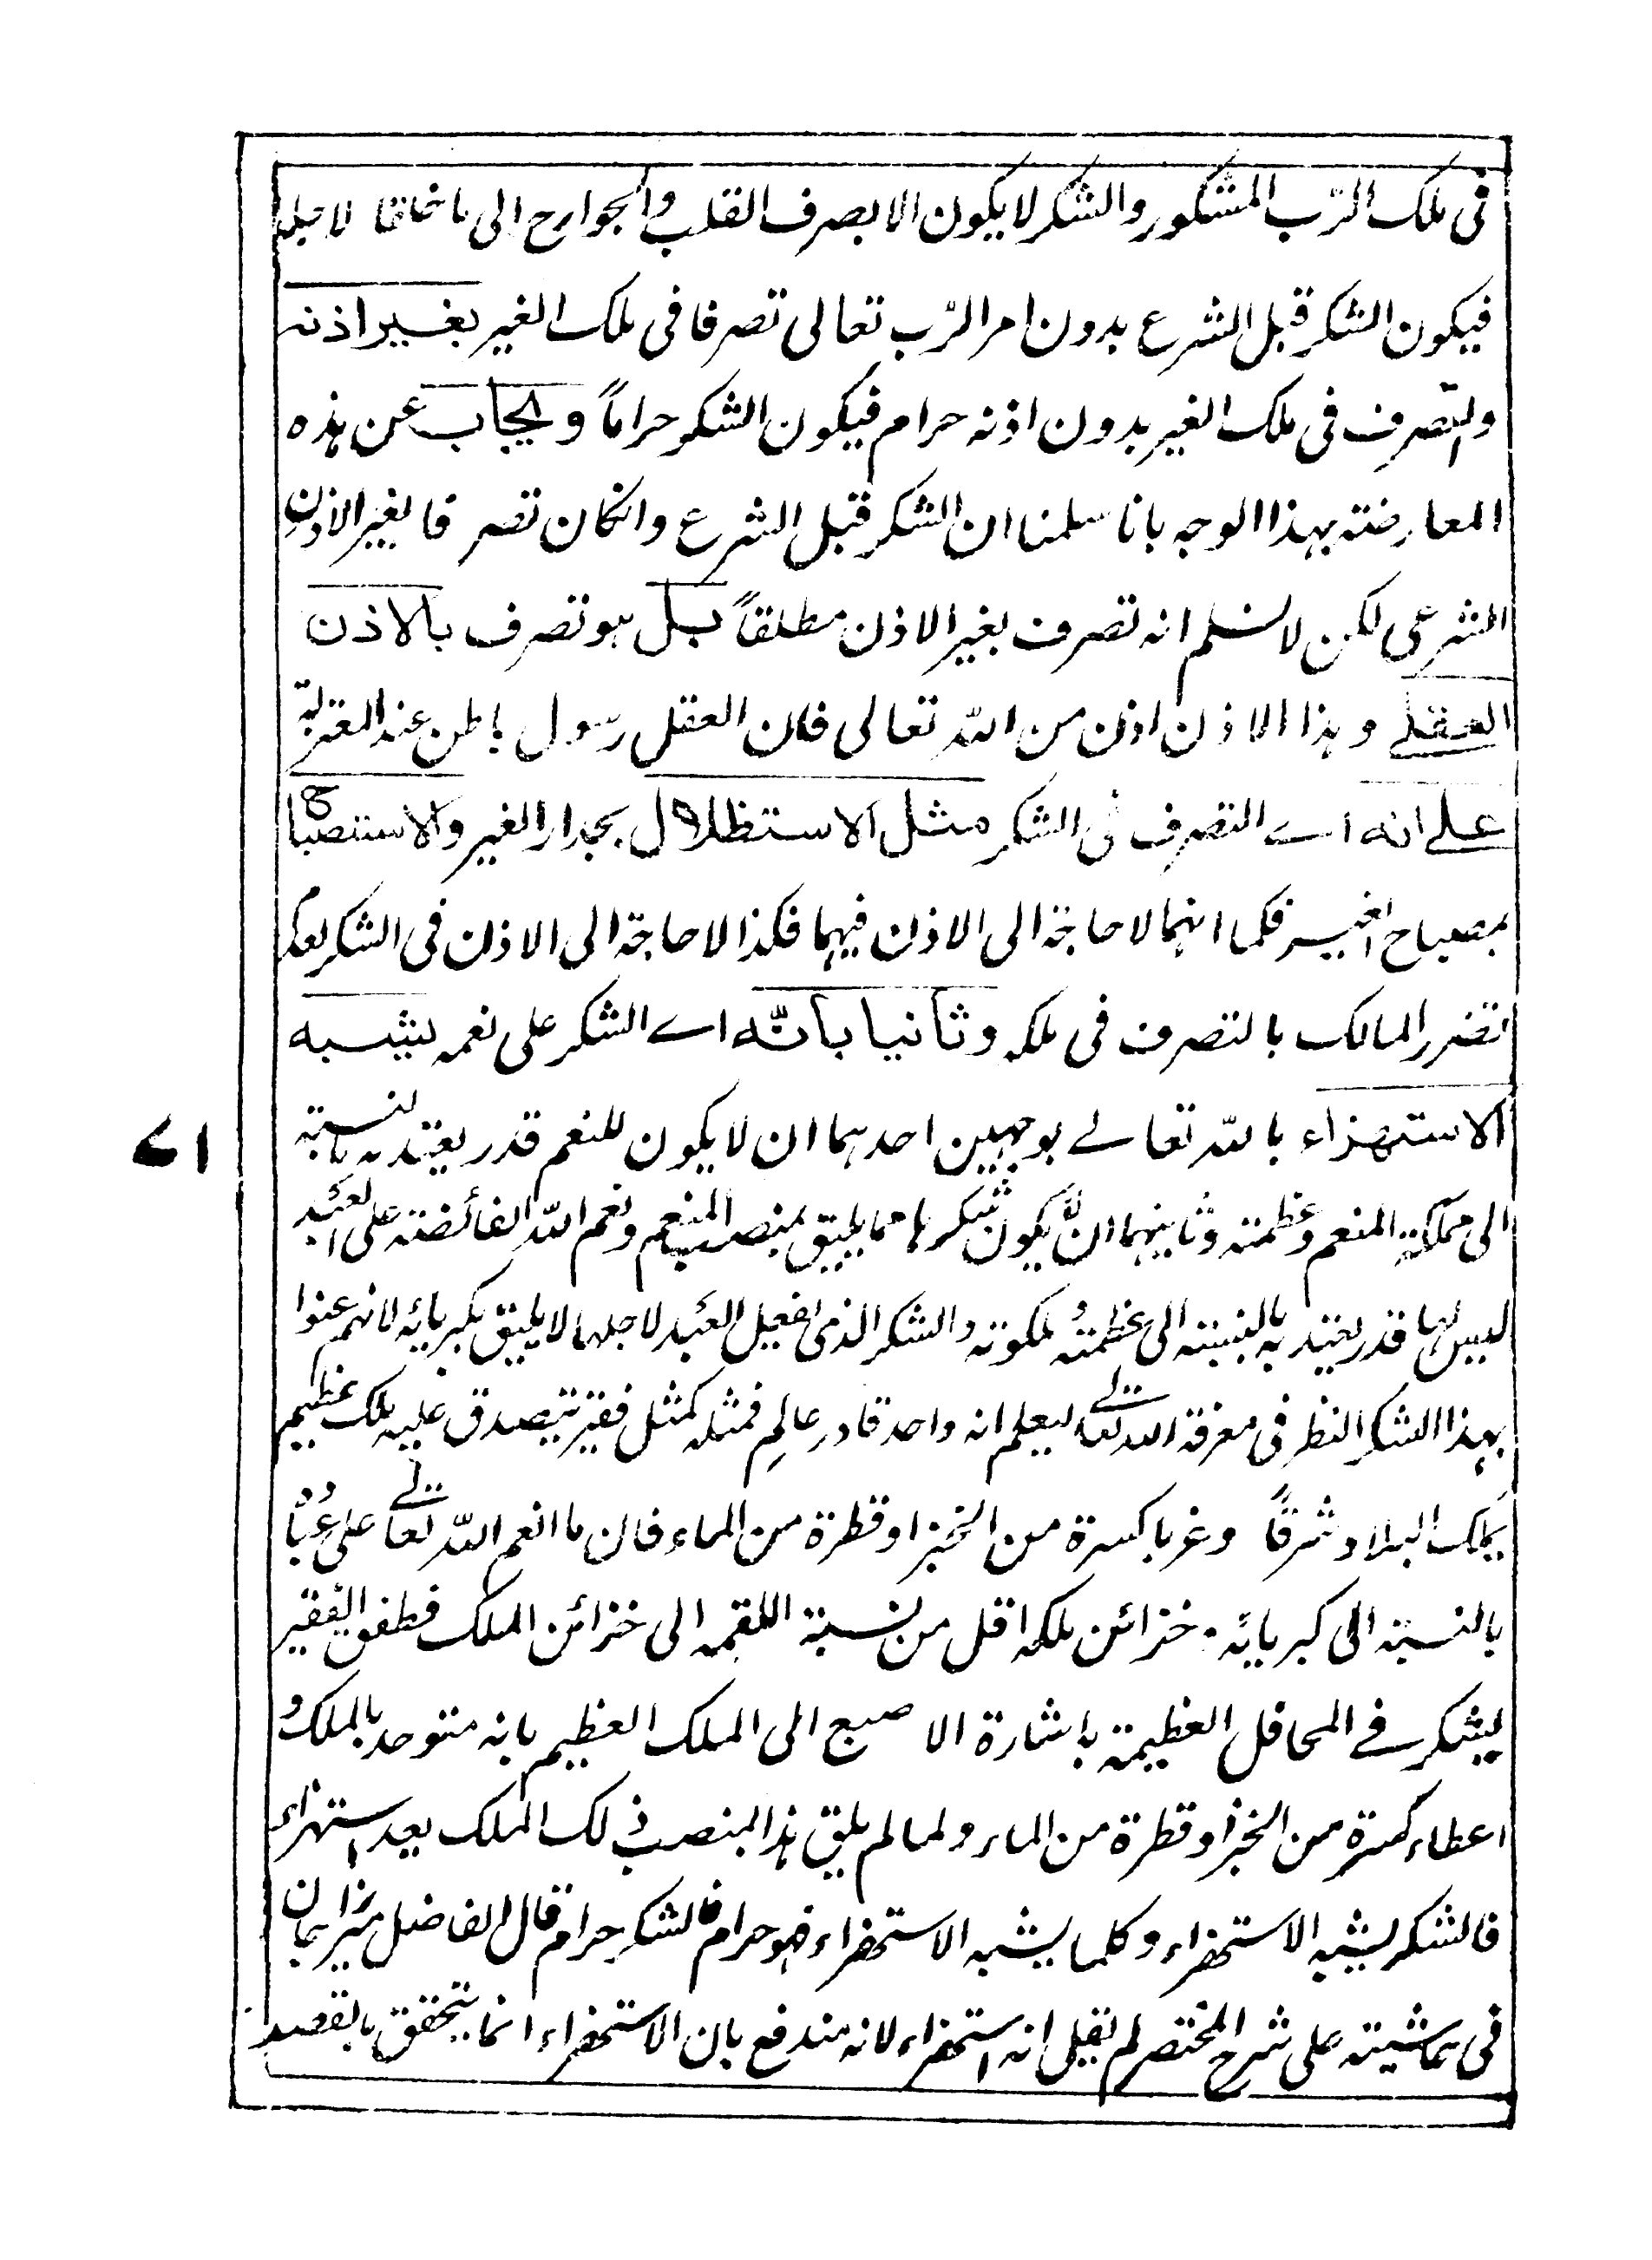 فى ملك الرّب المشكور والشكر لا يكون الا بصرف القلب والجوارح الى ما خلقا لاجله
فيكون الشكر قبل الشرع بدون امر الرّب تعالى تصرفا فى ملك الغير بغير اذنه
والتصرف فى ملك الغير بدون اذنه حرام فيكون الشكر حراماً ويجاب عن هذه
المعارضة بهذا الوجه بانا سلمنا ان الشكر قبل الشرع وانكان تصرفا بغير الاذن
الشرعى لكن لا نسلم انه تصرف بغير الاذن مطلقاً بل هو تصرف بالاذن
العقلے وهذا الاذن اذن من اللّٰه تعالى فان العقل رسول باطن عند المعتزلة
علے انه اے التصرف فى الشكر مثل الاستظلال بجدار الغير والاستصباح
بمصباح الغير فكما انهما لا حاجة الى الاذن فيهما فكذا لا حاجة الى الاذن فى الشكر لعدم
تضرر المالك بالتصرف فى ملكه وثانيا بانّه اے الشكر على نعمه يشبه
الاستهزاء باللّٰه تعالے بوجهين احدهما ان لا يكون للنعم قدر يعتد به بالنسبة
الى مملكة المنعم وعظمته وثانيهما ان لا يكون شكرها مما يليق بمنصب المنعم ونعم اللّٰه الفائضة على العبد
ليس لها قدر يعتد به بالنسبة الى عظمته وملكوته والشكر الذى يفعل العبد لاجلها لا يليق بكبريائه لانهم عنوا
بهذا الشكر النظر فى معرفة اللّٰه تعالے ليعلم انه واحد قادر عالم فمثله كمثل فقير تيصدق عليه ملك عظيم
يملك البلاد شرقاً وغربا كسرة من الخبز او قطرة من الماء فان ما انعم اللّٰه تعالے على عباده
بالنسبة الى كبريائه وخزائن ملكه اقل من نسبة اللقمه الى خزائن الملك فطفق الفقير
يشكر فے المحافل العظيمة باشارة الاصبع الى الملك العظيم بانه متوحد بالملك و
اعطاء كسرة من الخبز او قطرة من الماء ولما لم يلق هذا بمنصب ذلك الملك يعد استهزاء
فالشكر يشبه الاستهزاء وكلما يشبه الاستهزاء فهو حرام فالشكر حرام قال الفاضل ميرزاجان
فى حاشيته على شرح المختصر لم يقل انه استهزاء لانه مندفع بان الاستهزاء انما يتحقق بالقصد
۷۱